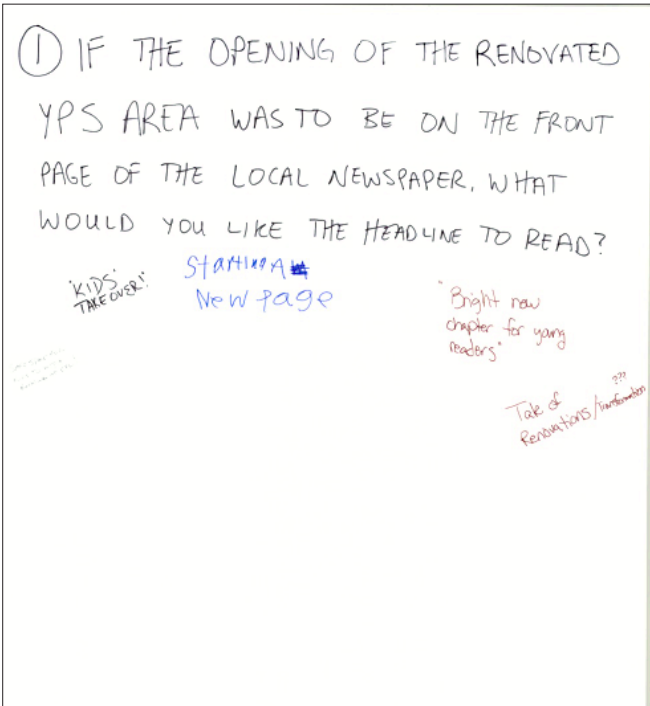 ① IF THE OPENING OF THE RENOVATED
YPS AREA WAS TO BE ON THE FRONT
PAGE OF THE LOCAL NEWSPAPER, WHAT
WOULD YOU LIKE THE HEADLINE TO READ?
'KIDS'
TAKEOVER!'
Starting A
New page
"Bright new
chapter for young
readers"
???
Tale of
Renovations/Transformation